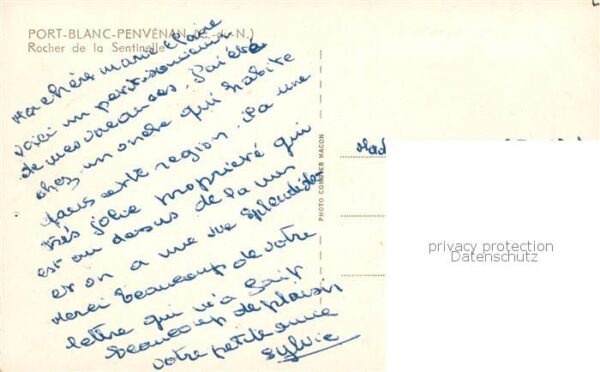 PORT-BLANC-PENVÉNAN (C.-du-N.)
Rocher de la Sentinelle
Ma chère marie claire
voici un petit souvenir
de mes vacances. J'ai été
chez un oncle qui habite
dans cette region. Il a une
très jolie propriété qui
est au dessus de la mer
et on a une vue splendide
Merci beaucoup de votre
lettre qui m'a fait
beaucoup de plaisir
votre petite amie
Sylvie
PHOTO COMBIER MACON
privacy protection
Datenschutz